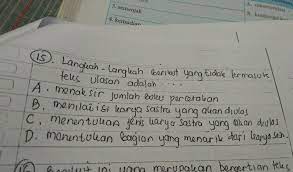 3. menunjuk
4. berbadan
15 Langkah-langkah berikut yang tidak termasuk
teks ulasan adalah ....
A. menaksir jumlah buku percetakan
B. menilai isi karya sastra yang akan diulas
C. menentukan jenis karya sastra yang akan diulas
D. menentukan bagian yang menarik dari karya seh.
ini yang merupakan pengertian teks